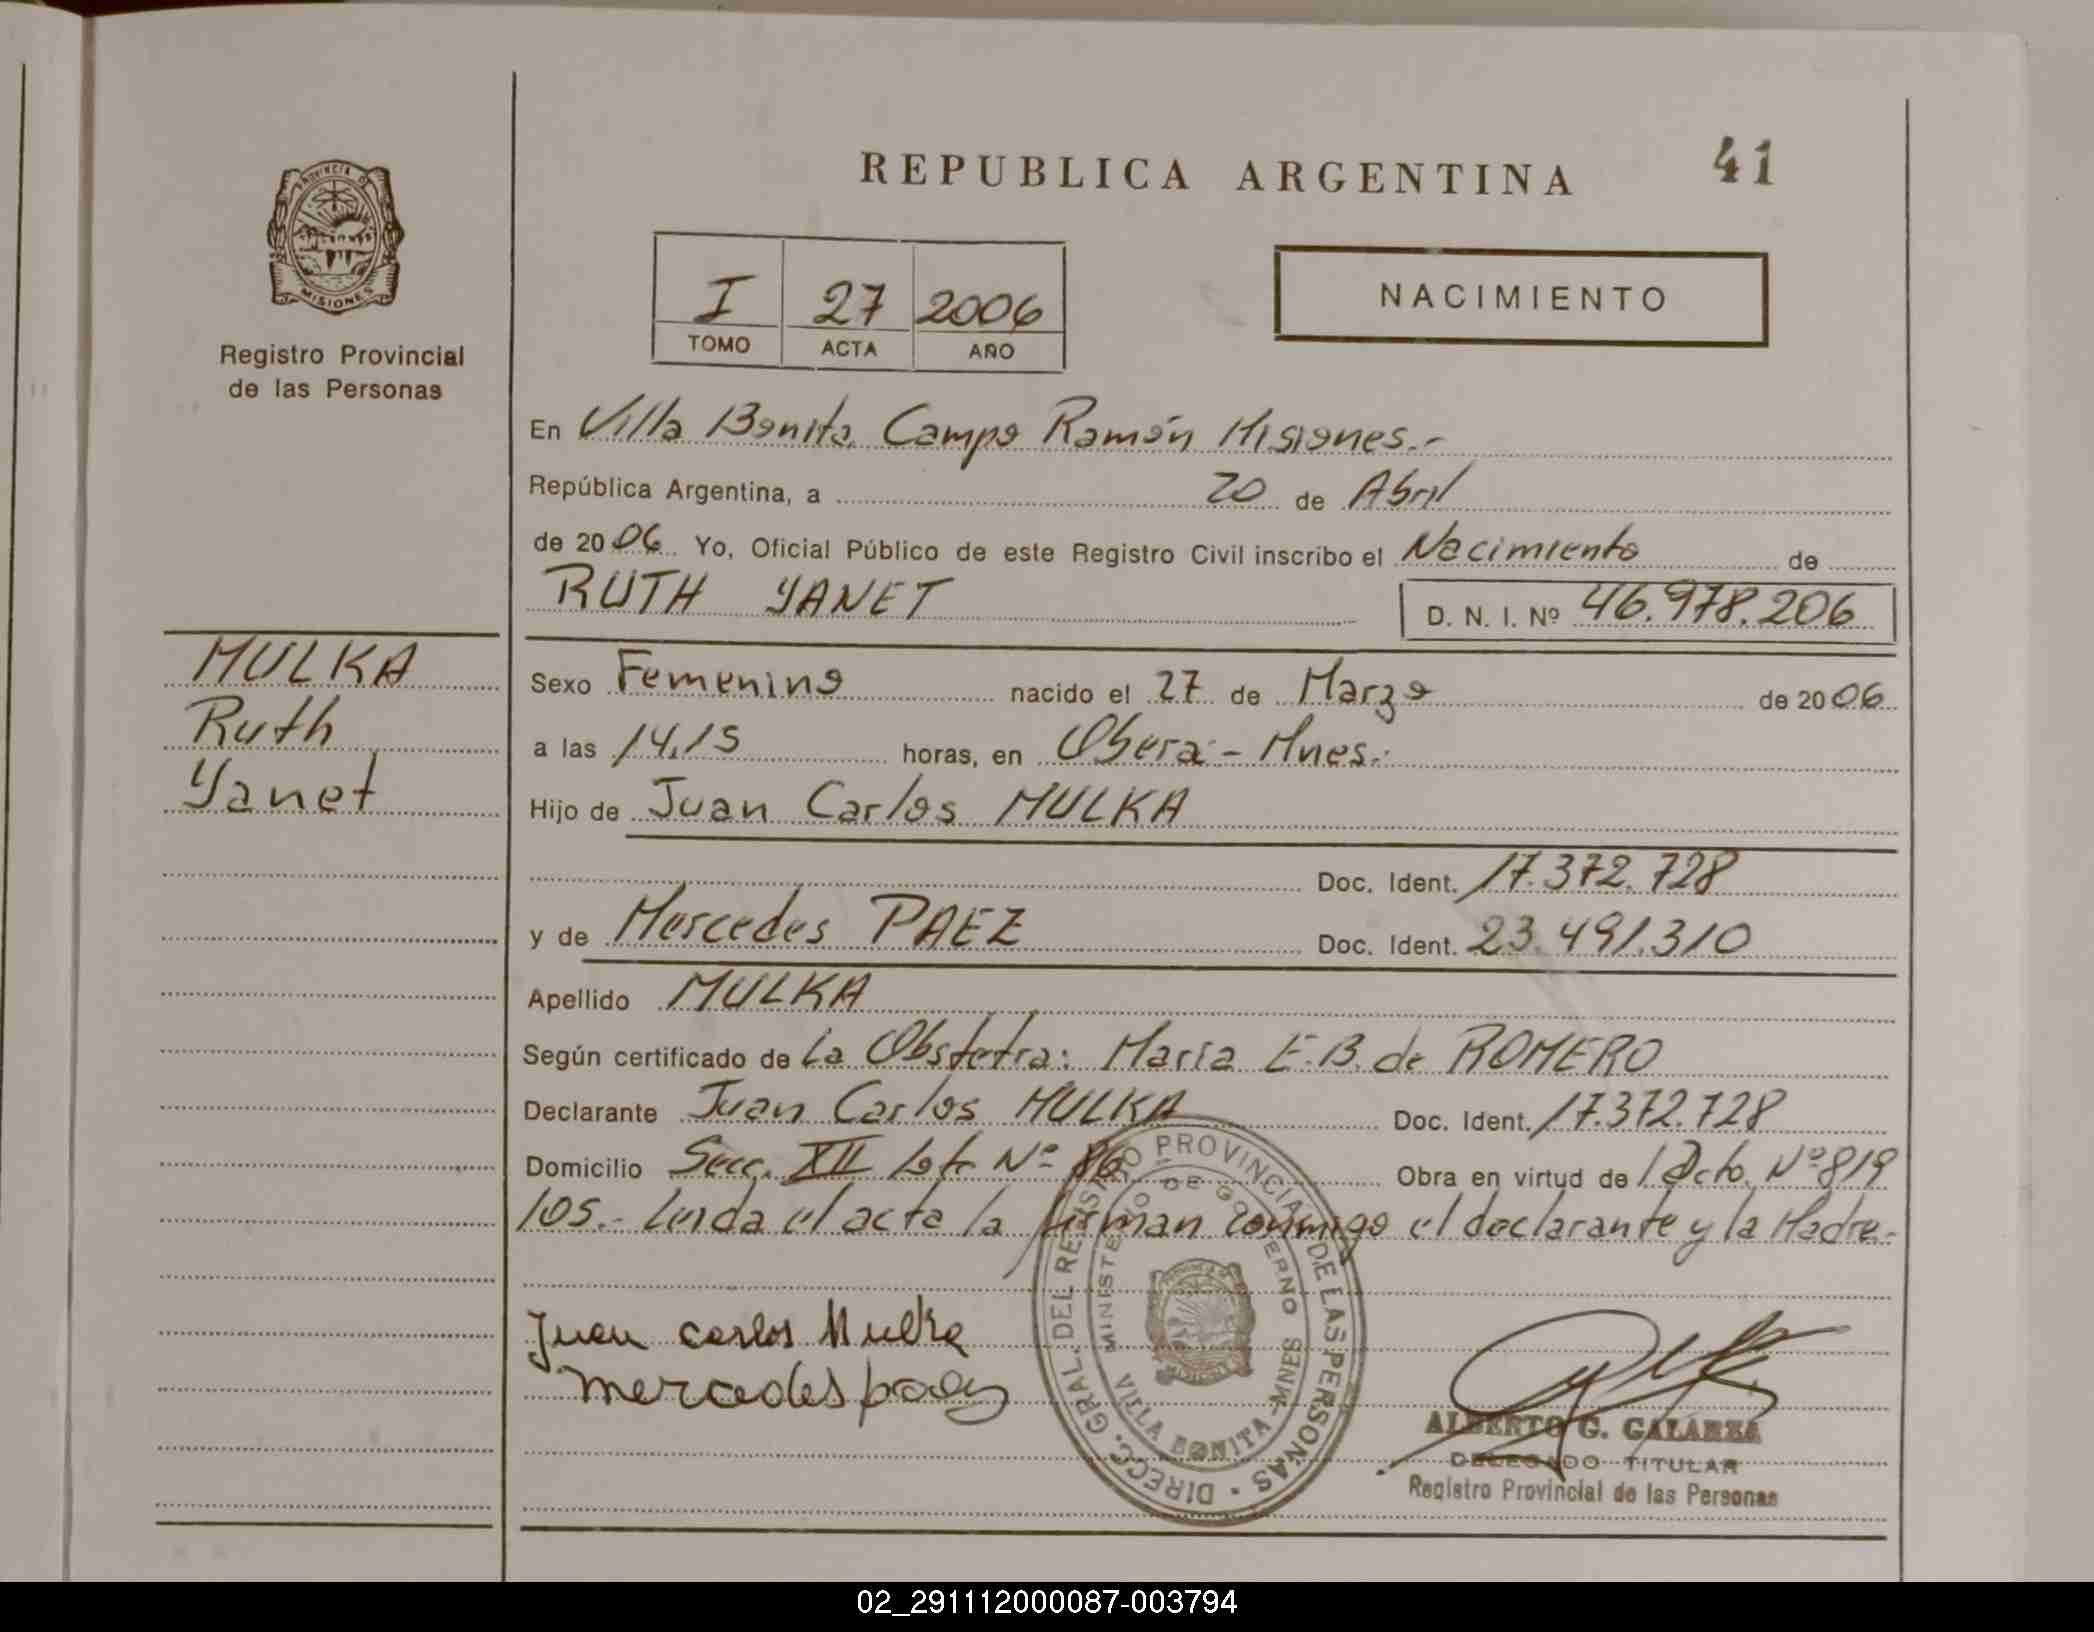 REPUBLICA ARGENTINA
41
PROVINCIA DE
MISIONES
Registro Provincial
de las Personas
I 27 2006
TOMO ACTA AÑO
NACIMIENTO
En Villa Bonita Campo Ramón Misiones.-
República Argentina, a 20 de Abril
de 2006 Yo, Oficial Público de este Registro Civil inscribo el Nacimiento de
RUTH YANET
D. N. I. Nº 46.978.206
MULKA
Ruth
Yanet
Sexo Femenino nacido el 27 de Marzo de 2006
a las 14,15 horas, en Oberá - Mnes.
Hijo de Juan Carlos MULKA
Doc. Ident. 17.372.728
y de Mercedes PAEZ Doc. Ident. 23.491.310
Apellido MULKA
Según certificado de La Obstetra: María E.B. de ROMERO
Declarante Juan Carlos MULKA Doc. Ident. 17.372.728
Domicilio Secc. XII Lote Nº 86 Obra en virtud de Dcto. Nº 819
105.- Leida el acta la firman conmigo el declarante y la Madre.-
Juan carlos Mulka
mercedes paez
DIRECC. GRAL. DEL REGISTRO PROVINCIAL DE LAS PERSONAS
MINISTERIO DE GOBIERNO
VILLA BONITA - MNES
ALBERTO G. GALARZA
DELEGADO TITULAR
Registro Provincial de las Personas
02_291112000087-003794